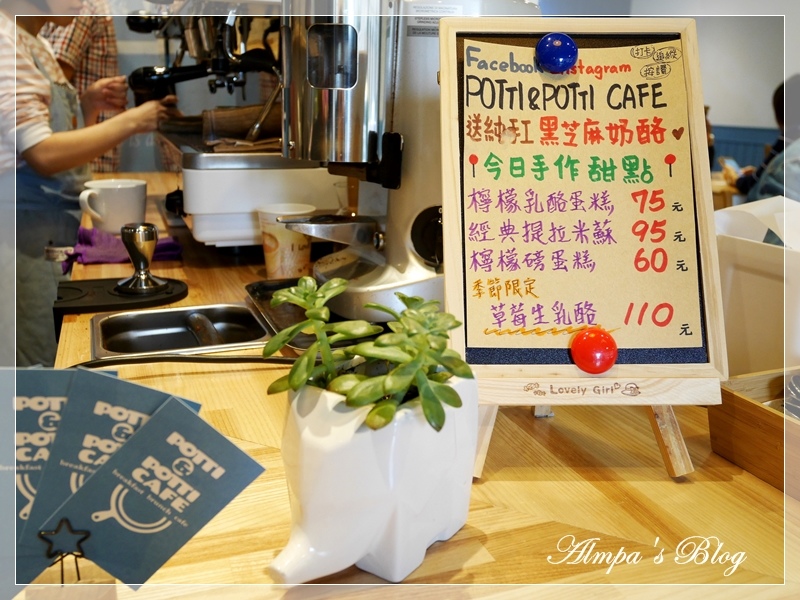 Facebook Instagram
打卡
按讚
POTTI&POTTI CAFE
送純手工 黑芝麻奶酪
今日手作甜點
檸檬乳酪蛋糕 75元
經典提拉米蘇 95元
檸檬磅蛋糕 60元
季節限定
草莓生乳酪 110元
Lovely Girl
POTTI
&
POTTI
CAFE
breakfast brunch cafe
Almpa's Blog